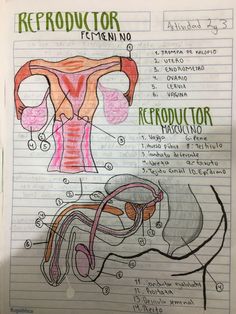 REPRODUCTOR
FEMENINO
Actividad 2 y 3
1. TROMPA DE FALOPIO
2. UTERO
3. ENDOMETRIO
4. OVARIO
5. CERVIX
6. VAGINA
REPRODUCTOR
MASCULINO
1. Vejiga 6. Pene
2. Hueso púbico 8. Testículo
3. conducto deferente
4. Uretra 9. Escroto
5. Tejido 10. Epidídimo
11. conductor eyaculador
12. Prostata
13. Vesícula seminal
14. Recto